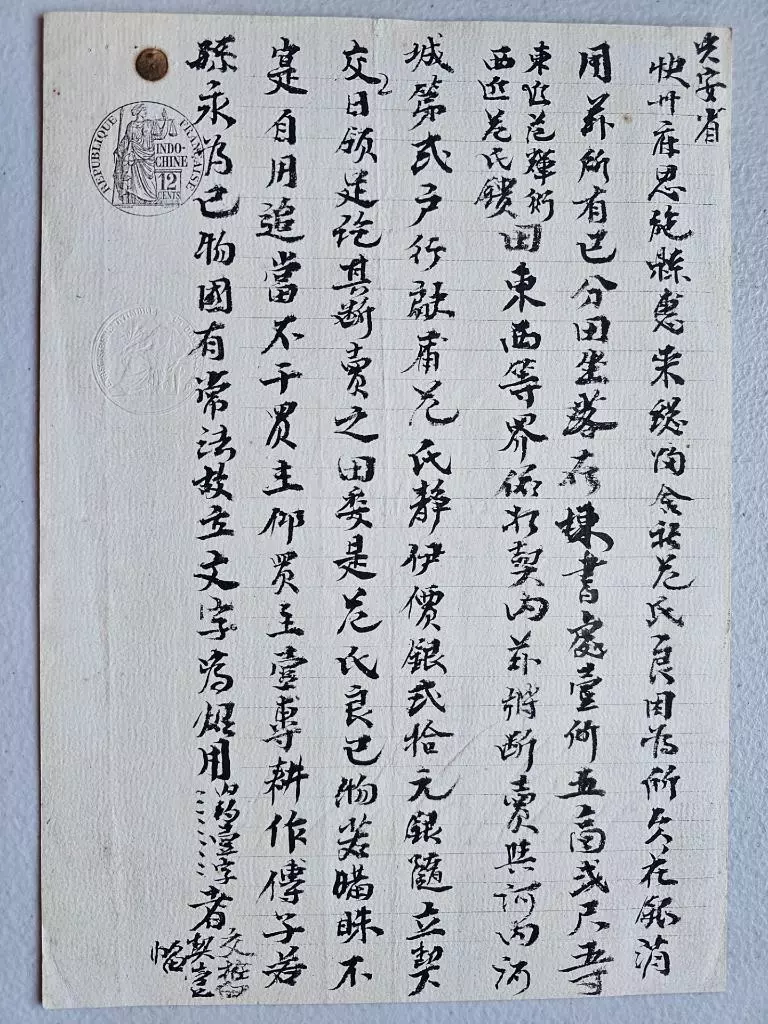 兴安省
快州府恩施縣惠来總陶舍社范氏良因為所欠在銀消
用茲所有己分田坐落在棟書處壹所五高弍尺等
東近范輝衍
西近范氏
田東西等界依於契內茲將斷賣與河內河
城第弍户行歐甫范氏靜伊價銀弍拾元銀隨立契
交日領足訖其斷賣之田委是范氏良己物若瞞昧不
寔自用追當不干買主仰買主壹專耕作傳子若
孫永為己物國有常法故立文字為炤用
內約壹字
者
交
契壹
REPUBLIQUE FRANÇAISE
INDO-
CHINE
12
CENTS